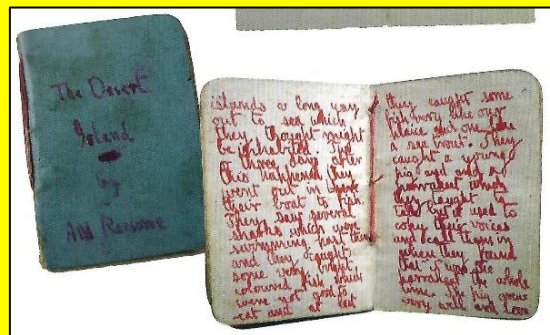 The Desert
Island
by
AM Ransome
islands a long way
out to sea which
they thought might
be inhabited. Two
or three days after
this happened they
went out in
their boat to fish.
They saw several
sharks which were
swimming past them
and they caught
some very bright
coloured fish which
were not good to
eat and at last
they caught some
fish very like our
plaice and one like
a sea trout. They
caught a young
pig and a
parrakeet which
they taught to
talk but it used to
copy their voices
and call them in
when they found
that it was the
parrakeet the whole
time. The pig grew
very well and soon